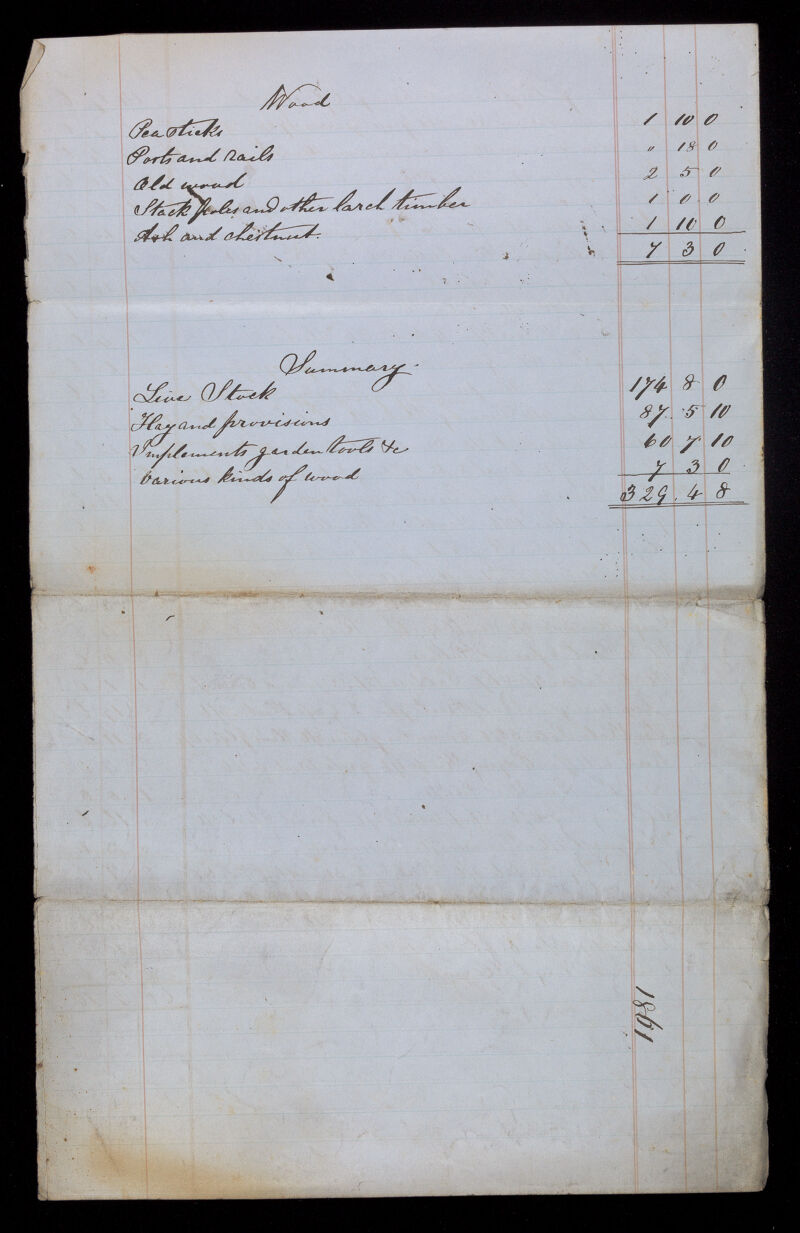 Wood
Pea Sticks 1 10 0
Posts and rails " 18 0
Old wood 2 5 0
Stack poles and other larch timber 1 0 0
Ash and chestnut. 1 10 0
7 3 0
Summary.
Live Stock 174 8 0
Hay and provisions 87 5 10
Implements garden tools &c 60 7 10
Various kinds of wood 7 3 0
329. 4 8
1861